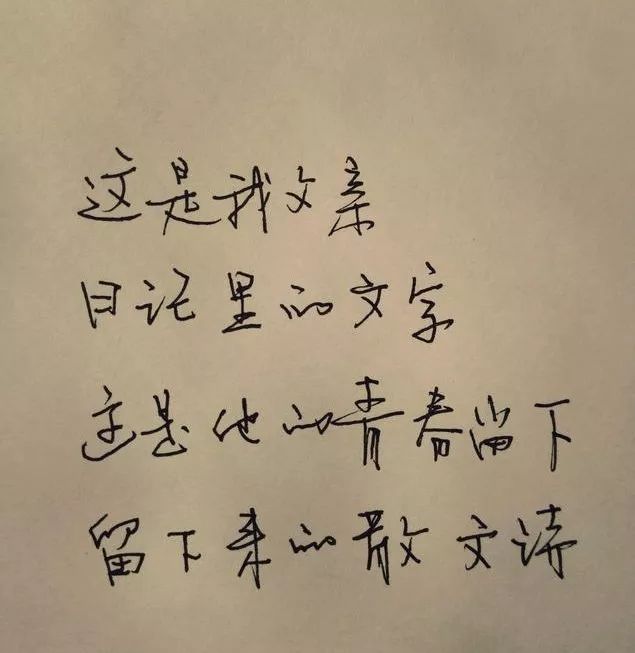 这是我父亲
日记里的文字
这是他的青春留下
留下来的散文诗